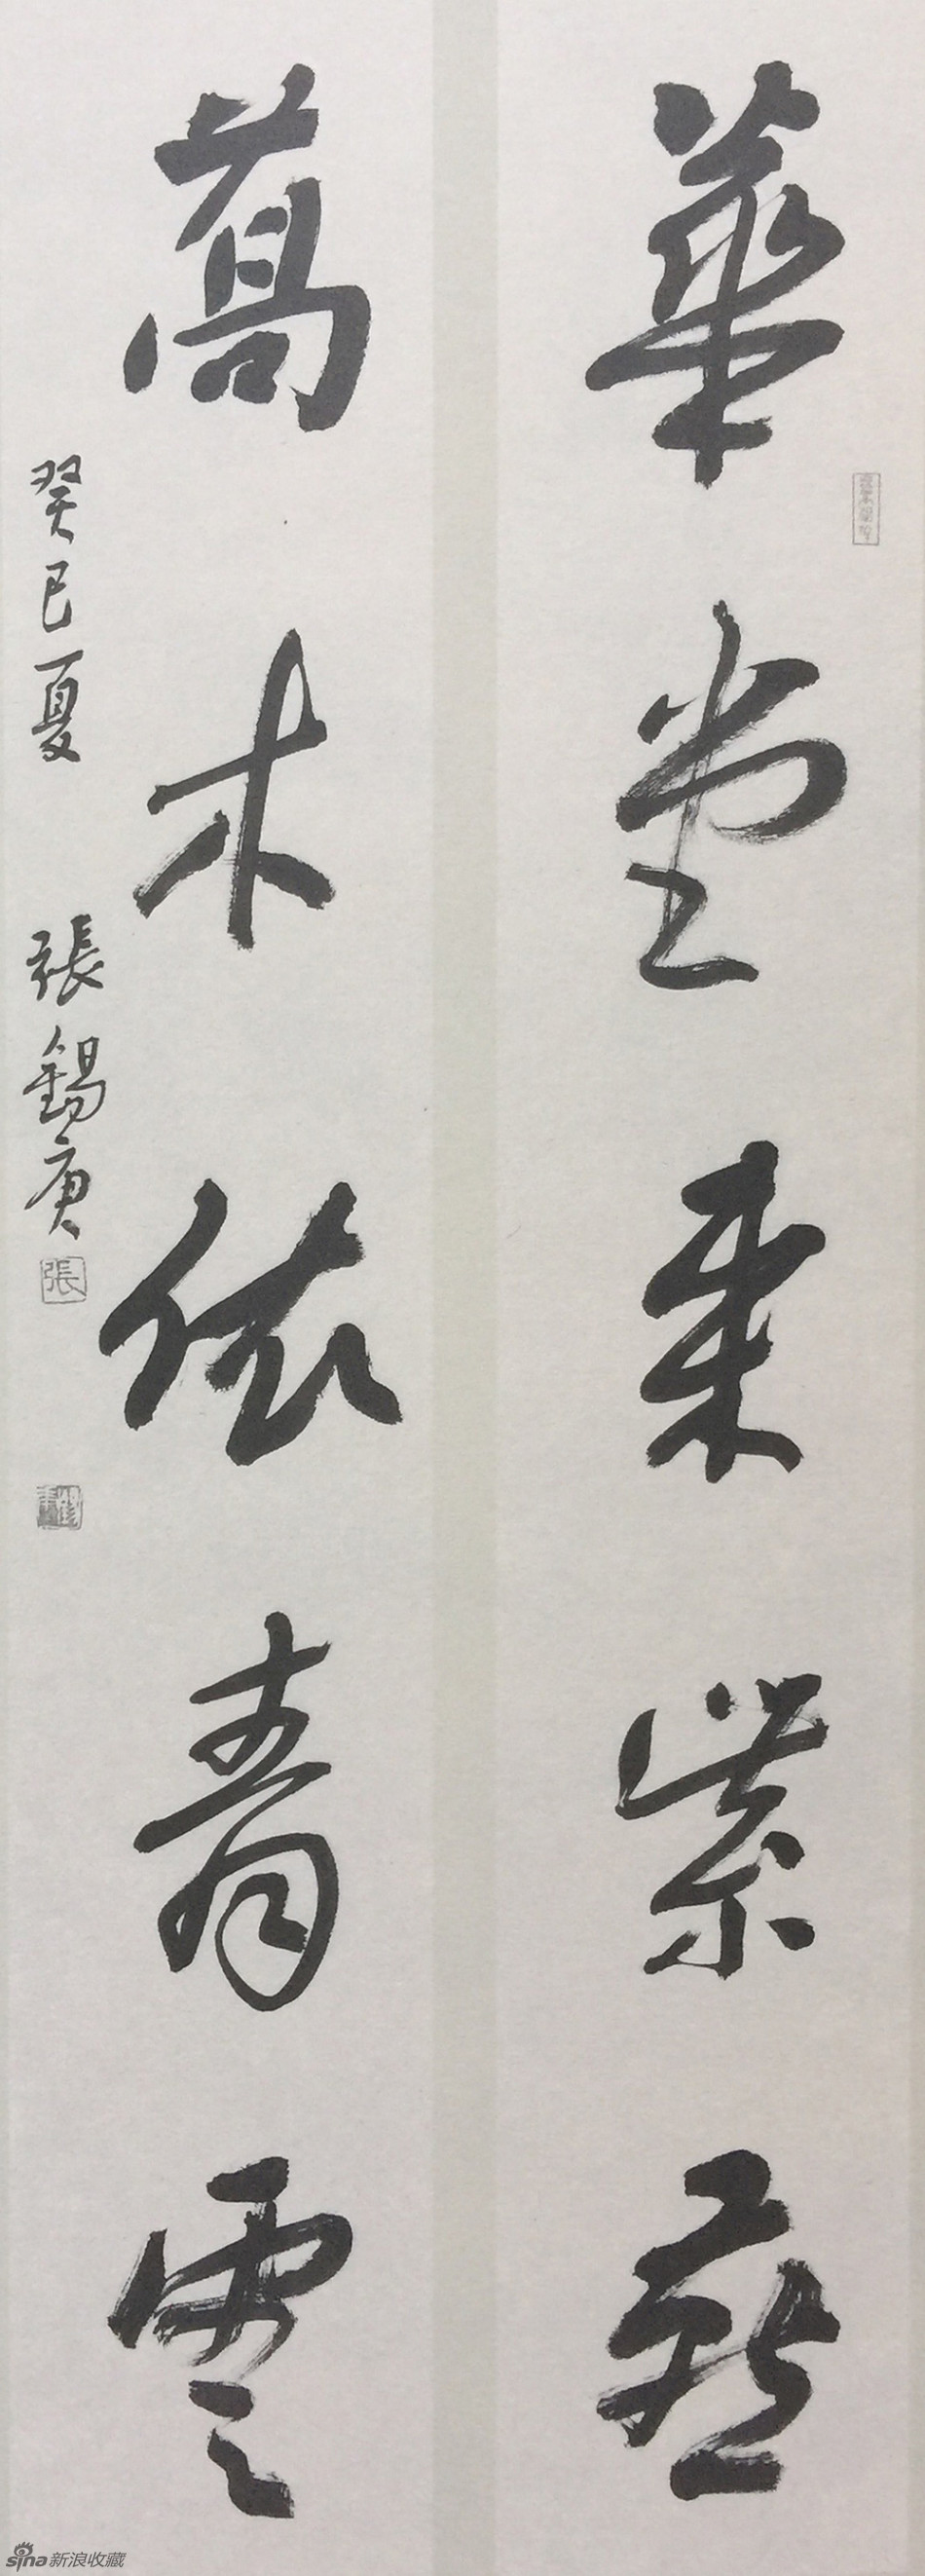 華堂來紫燕
萬木依青雲
癸巳夏 張錫庚
張
sina新浪收藏